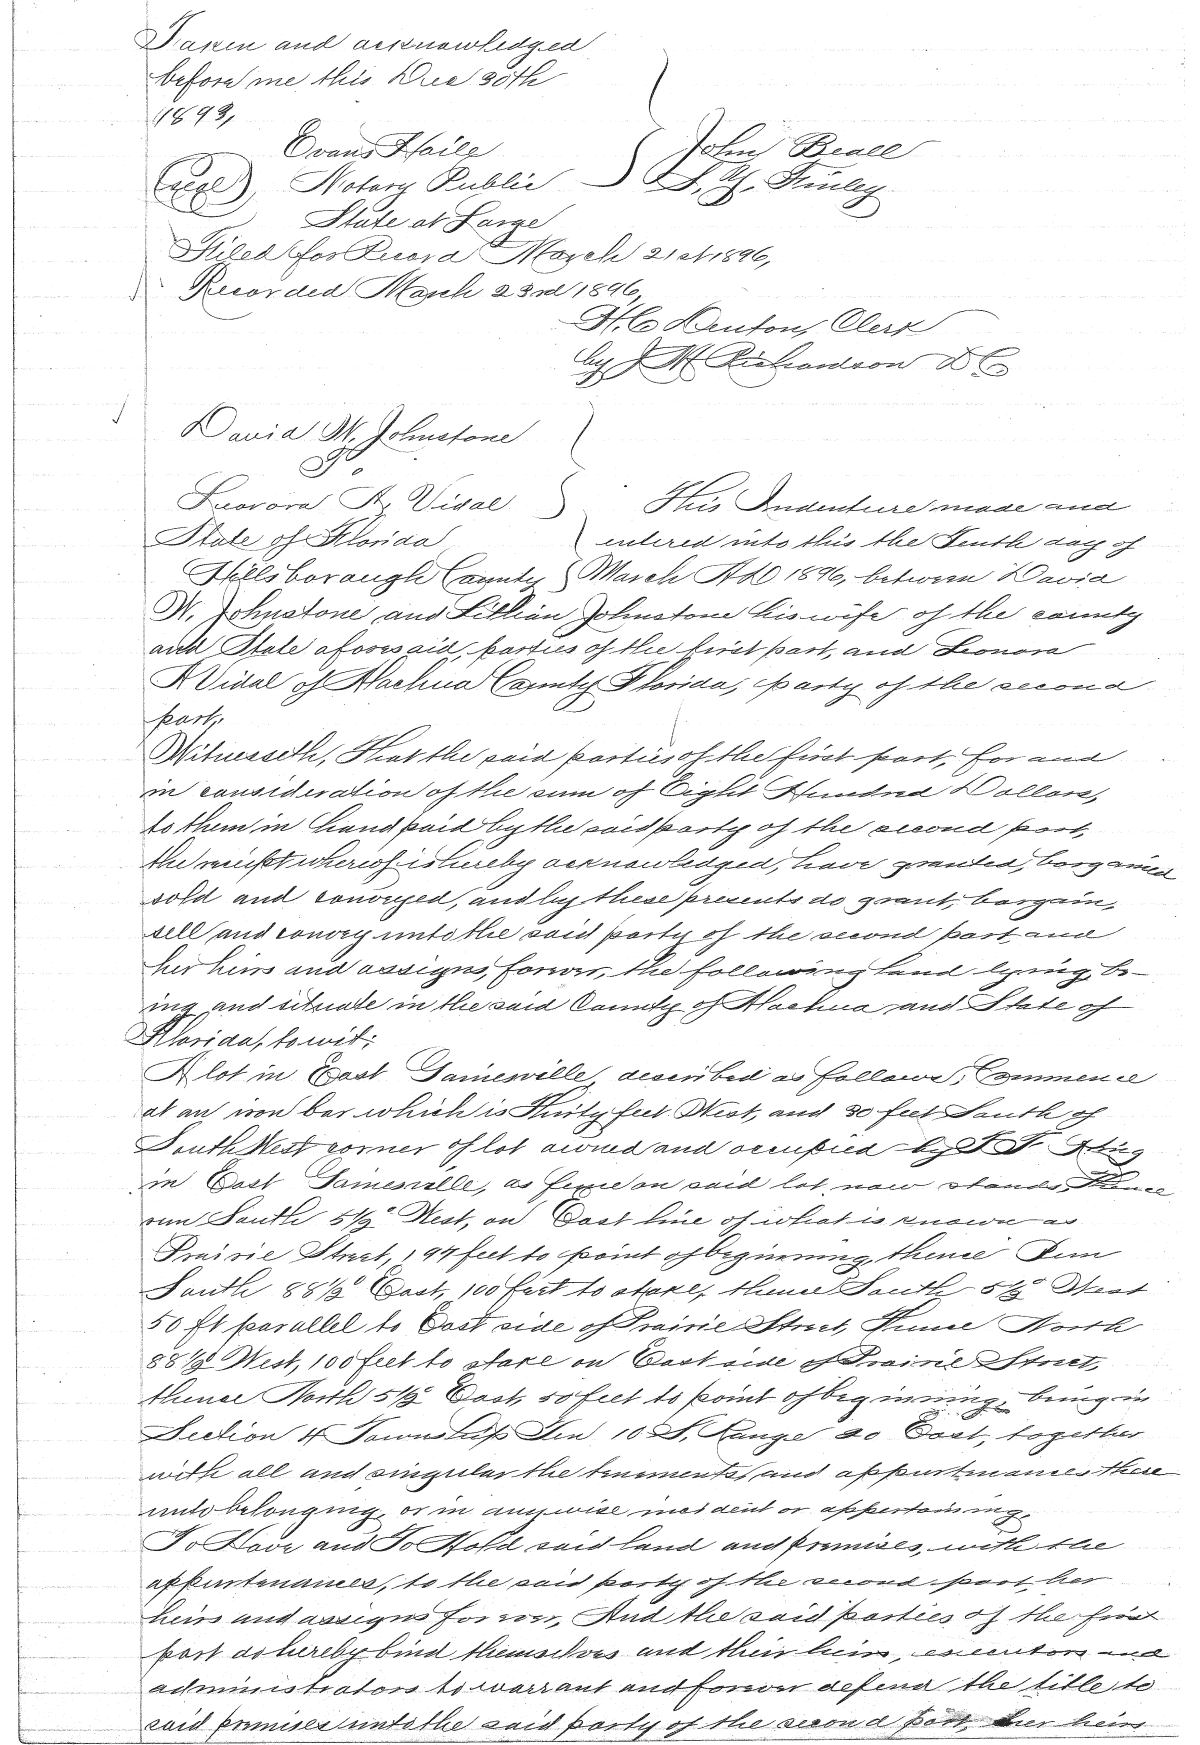 Taken and acknowledged
before me this Dec 30th
1893,
Evans Haile
John Beall
(seal) Notary Public
State at Large
Filed for Record March 21st 1896,
Recorded March 23rd 1896,
H. C. Denton, Clerk
by J M Richardson D C
David W. Johnstone
To
Leonora A. Vidal
This Indenture made and
State of Florida
entered into this the Tenth day of
Hillsborough County
March AD 1896, between David
W. Johnstone and Lillian Johnstone his wife of the county
and State aforesaid, parties of the first part, and Leonora
A Vidal of Alachua County Florida, party of the second
part,
Witnesseth, That the said parties of the first part, for and
in consideration of the sum of Eight Hundred Dollars,
to them in hand paid by the said party of the second part,
the receipt whereof is hereby acknowledged, have granted, bargained
sold and conveyed, and by these presents do grant, bargain,
sell and convey unto the said party of the second part and
her heirs and assigns, forever, the following land lying be-
ing and situate in the said County of Alachua and State of
Florida, to wit:
A lot in East Gainesville, described as follows; Commence
at an iron bar which is Thirty feet West, and 30 feet South of
South West corner of lot owned and occupied by
in East Gainesville, as fence on said lot now stands, Thence
run South 5½° West, on East line of what is known as
Prairie Street, 194 feet to point of beginning, thence Run
South 88½° East, 100 feet to stake, thence South 5½° West
50 ft parallel to East side of Prairie Street, Thence North
88½° West, 100 feet to stake on East side of Prairie Street,
thence North 5½° East, 50 feet to point of beginning, being in
Section 4 Township Ten 10 S, Range 20 East, together
with all and singular the tenements, and appurtenances there
unto belonging, or in anywise incident or appertaining,
To Have and To Hold said land and premises, with the
appurtenances, to the said party of the second part, her
heirs and assigns forever, And the said parties of the first
part do hereby bind themselves and their heirs, executors and
administrators to warrant and forever defend the title to
said premises unto the said party of the second part, her heirs